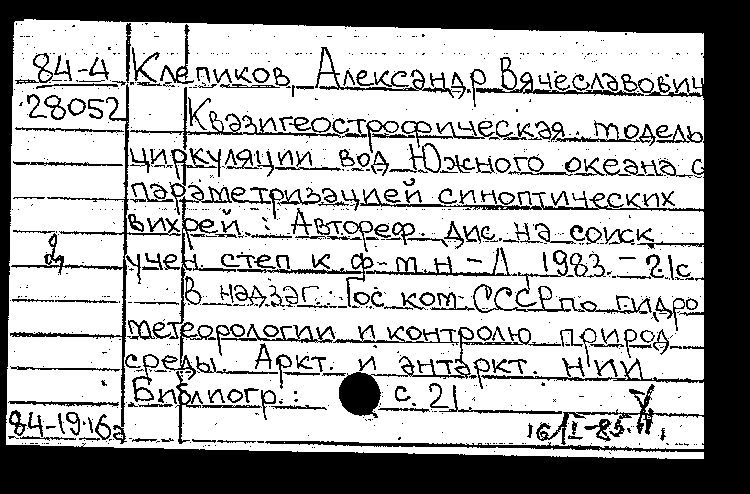 84-4 Клепиков, Александр Вячеславович
28052 Квазигеострофическая модель
циркуляции вод Южного океана с
параметризацией синоптических
вихрей : Автореф. дис. на соиск
учен степ к. ф-т. н - Л, 1983. - 21с
В надзаг. Гос ком СССР по гидро
метеорологии и контролю природ
среды. Аркт. и антаркт. нии
Библиогр.: с. 21
84-1916а 16/I-85.